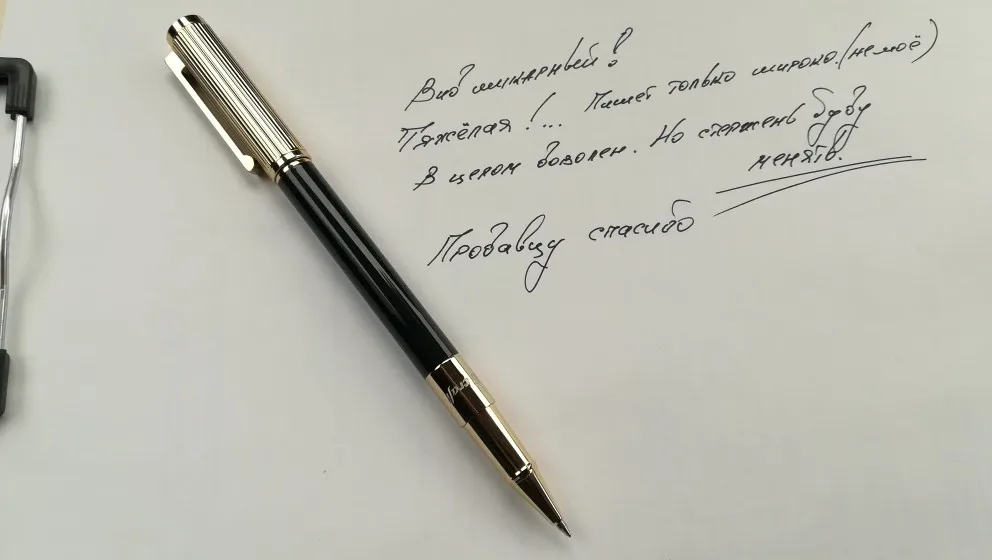 Вид шикарный!
Тяжёлая!... Пишет только широко.(не моё)
В целом доволен. Но стержень буду
менять.
Продавцу спасибо